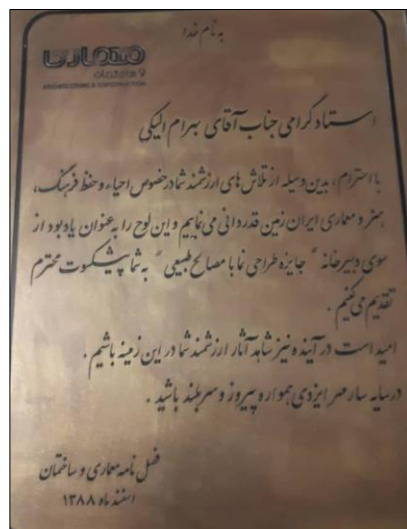 به نام خدا
معماری
و ساختمان
ARCHITECTURE & CONSTRUCTION
استاد گرامی جناب آقای بهرام الیکی
با احترام، بدین وسیله از تلاش های ارزشمند شما در خصوص احیاء و حفظ فرهنگ،
هنر و معماری ایران زمین قدردانی می نماییم و این لوح را به عنوان یادبود از
سوی دبیرخانه " جایزه طراحی نما با مصالح طبیعی " به شما پیشکسوت محترم
تقدیم می کنیم.
امید است در آینده نیز شاهد آثار ارزشمند شما در این زمینه باشیم.
در سایه سار مهر ایزدی همواره پیروز و سربلند باشید.
فصل نامه معماری و ساختمان
اسفند ماه ۱۳۸۸